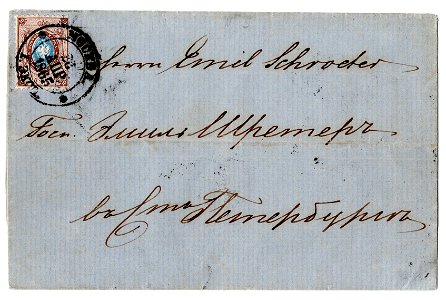 Herrn Emil Schroeter
Госп. Эмиль Шретеръ
въ Санк Петербургъ